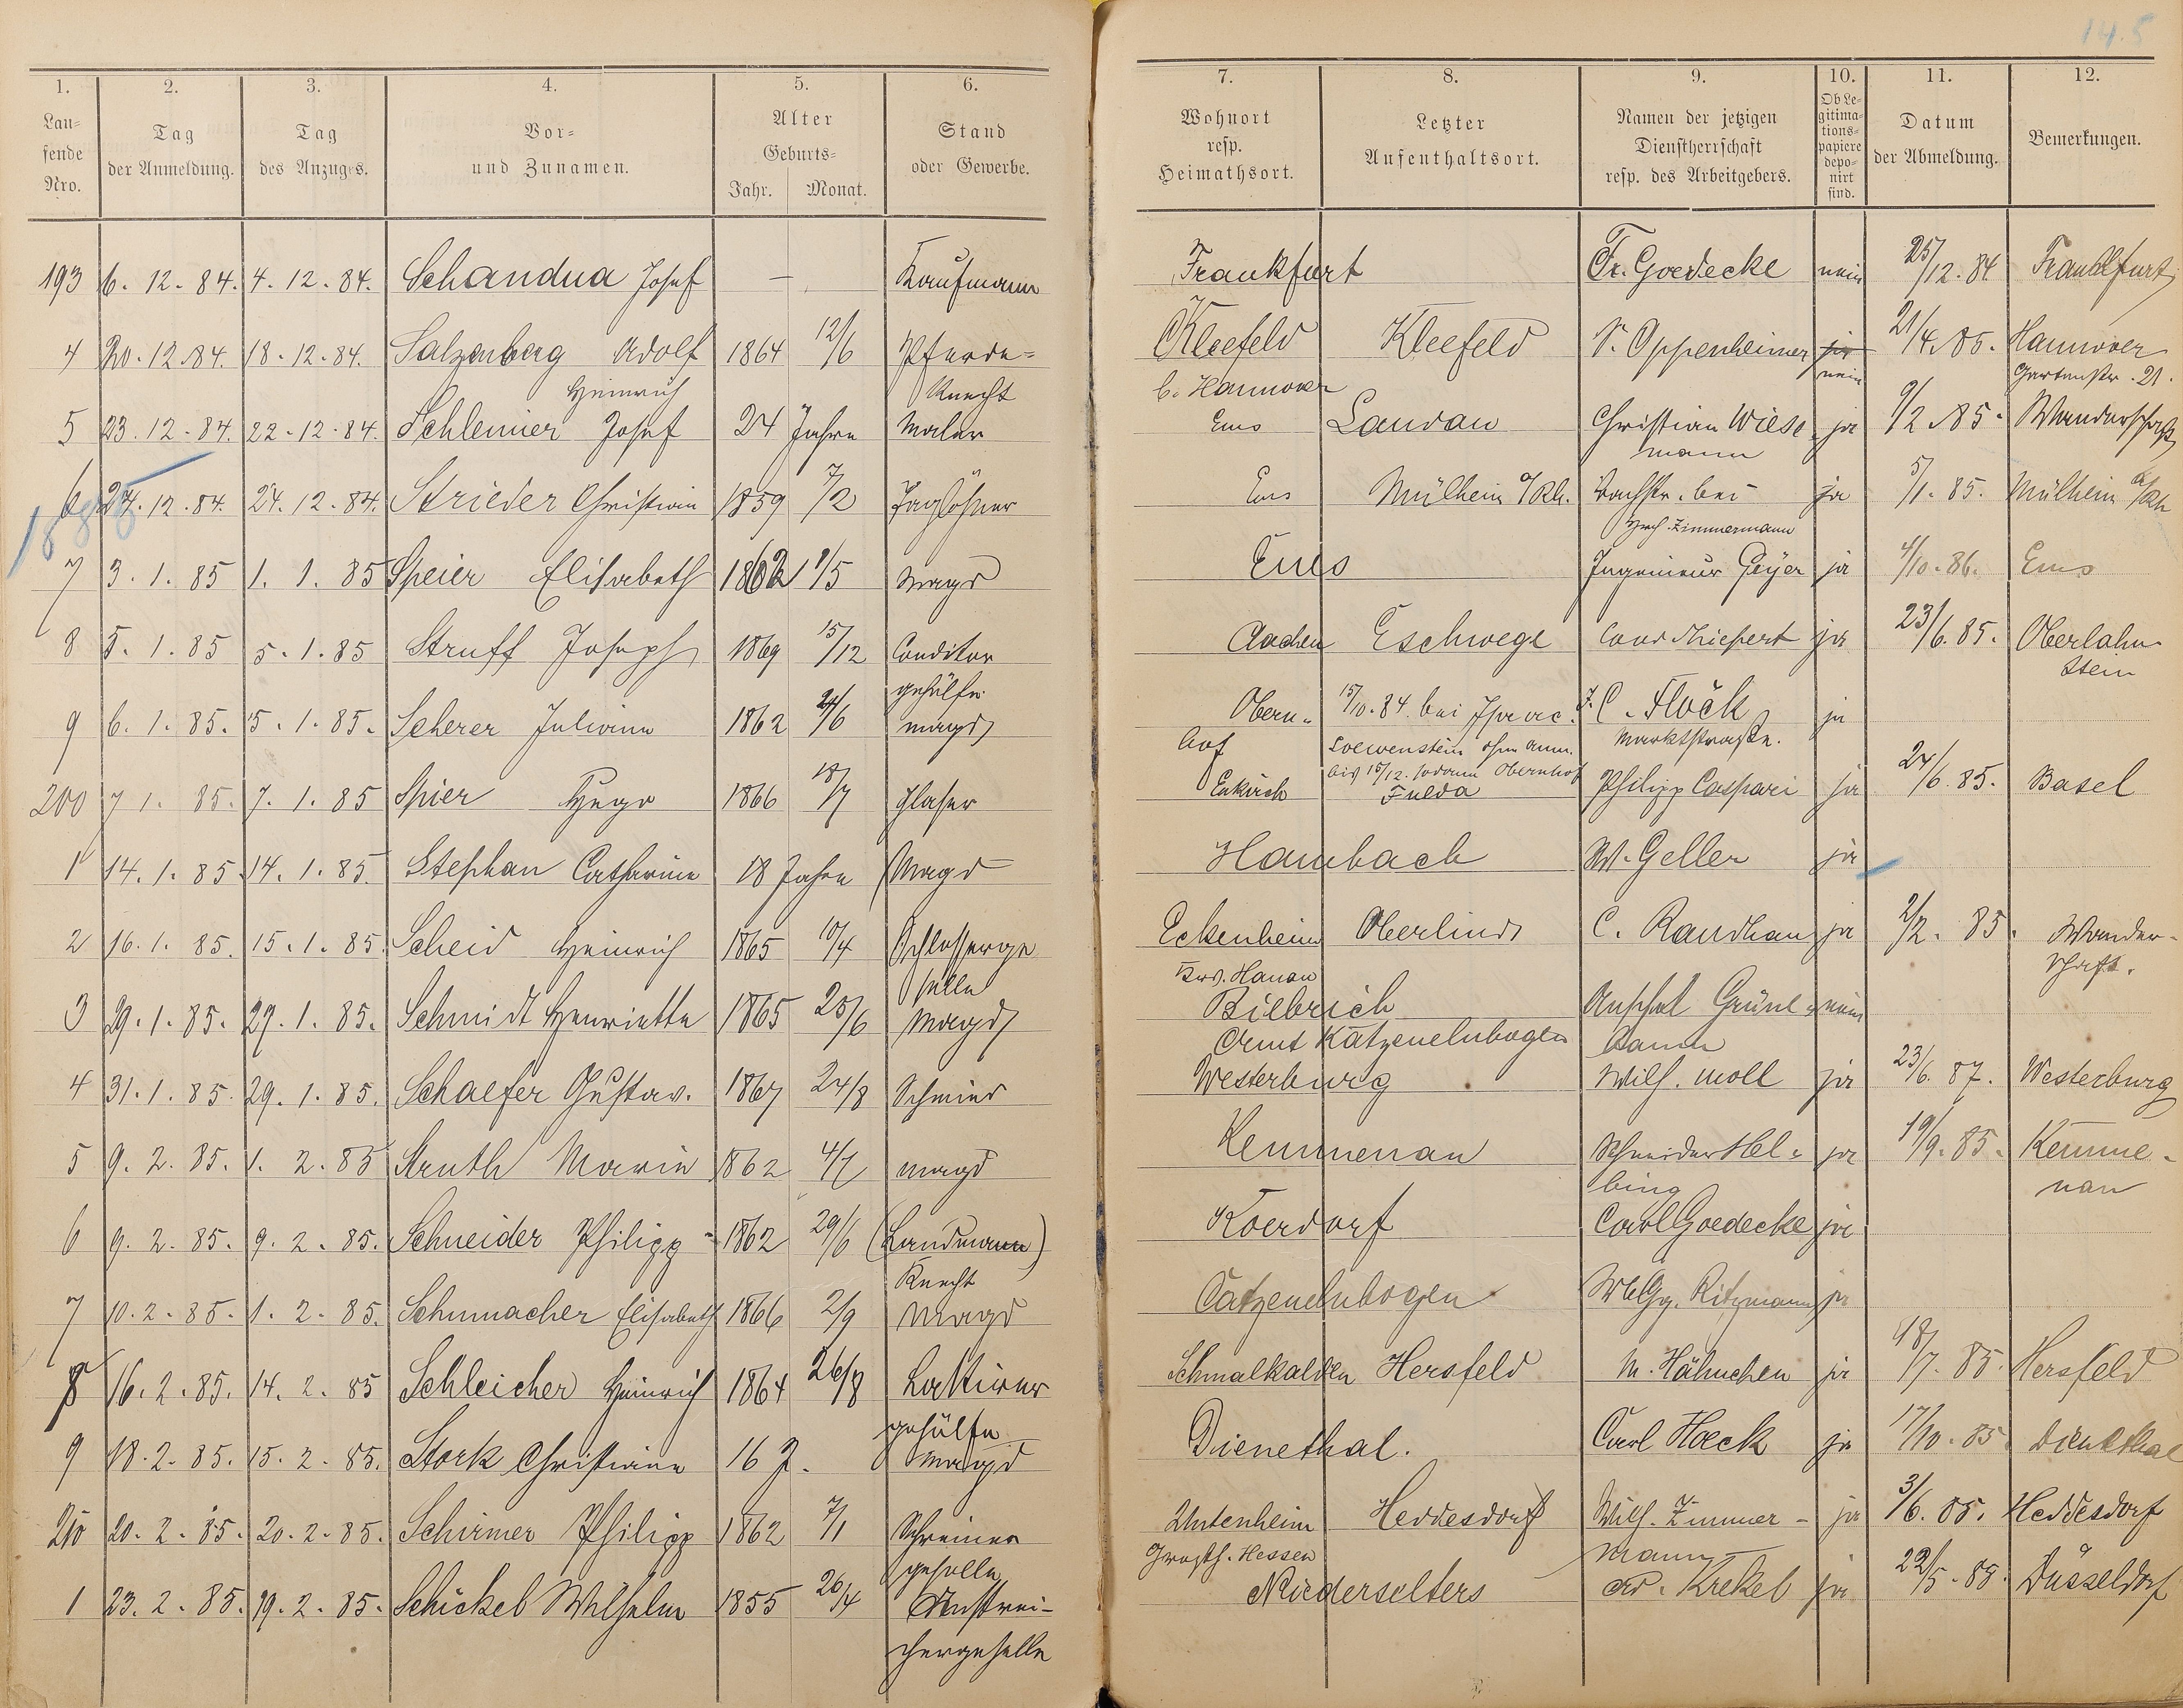 14.5
1. 2. 3. 4. 5. 6. 7. 8. 9. 10. 11. 12.
Lau-
fende
Nro.
Tag
der Anmeldung.
Tag
des Anzuges.
Vor-
und Zunamen.
Alter
Geburts-
Jahr. Monat.
Stand
oder Gewerbe.
Wohnort
resp.
Heimathsort.
Letzter
Aufenthaltsort.
Namen der jetzigen
Dienstherrschaft
resp. des Arbeitgebers.
Ob Le-
gitima-
tions-
papiere
depo-
nirt
sind.
Datum
der Abmeldung.
Bemerkungen.
193 6. 12. 84. 4. 12. 84. Schandua Josef — Kaufmann Frankfurt Fr. Goedecke nein 25/12. 84 Frankfurt
4 20. 12. 84. 18. 12. 84. Salzenberg Adolf 1864 12/6 Pferde- Kleefeld Kleefeld S. Oppenheimer ja 21/4. 85. Hannover
Heinrich Knecht b. Hannover nein Gartenstr. 21.
5 23. 12. 84. 22. 12. 84. Schlemier Josef 24 Jahre Maler Ems Landau Christian Wiese- ja 9/2. 85. Wanderschaft
mann
6 27. 12. 84. 24. 12. 84. Strieder Christian 1859 7/2 Taglöhner Ems Mülheim a/Rh. Bachstr. bei ja 5/1. 85. Mülheim a/Rh
Hch. Zimmermann
1885
7 3. 1. 85 1. 1. 85 Speier Elisabeth 1862 1/5 Magd Ems Ingenieur Geyer ja 4/10. 86. Ems
8 5. 1. 85 5. 1. 85 Struff Joseph 1869 15/12 Conditor Aachen Eschwege ja 23/6. 85. Oberlahn-
gehülfe stein
9 6. 1. 85. 5. 1. 85. Scherer Juliane 1862 24/6 Magd Obern- 15/10. 84. bei Isaac J. C. Flöck ja
hof Loewenstein ohne Anm. Marktstraße.
bis 15/12. sodann Obernhof
200 7 1. 85. 7. 1. 85 Spier Hugo 1866 18/7 Glaser Enkirch Fulda Philipp Caspari ja 24/6. 85. Basel
1 14. 1. 85. 14. 1. 85. Stephan Catharine 18 Jahre Magd Hambach W. Geller ja
2 16. 1. 85. 15. 1. 85. Scheid Heinrich 1865 10/4 Schlosserge- Eckenheim Oberlind C. Randhan ja 2/2. 85. Wander-
selle Krs. Hanau schaft.
3 29. 1. 85. 27. 1. 85. Schmidt Henriette 1865 25/6 Magd Bielbrich Anschel Grüne- nein
Amt Katzenelnbogen baum
4 31. 1. 85. 29. 1. 85. Schaefer Gustav. 1867 24/8 Schmied Westerburg Wilh. Moll ja 23/6. 87. Westerburg
5 9. 2. 85. 1. 2. 85 Struth Marie 1862 4/7 Magd Kemmenau Schneider Hel- ja 19/9. 85. Kemme-
bing nau
6 9. 2. 85. 9. 2. 85. Schneider Philipp 1862 29/6 (Landmann) Koerdorf Carl Goedecke ja
Knecht
7 10. 2. 85. 1. 2. 85. Schumacher Elisabeth 1866 2/9 Magd Catzenelnbogen Ritzmann ja
8 16. 2. 85. 14. 2. 85 Schleicher Heinrich 1864 26/8 Lakirer Schmalkalden Hersfeld M. Hähnchen ja 18/7. 85. Hersfeld
gehülfe
9 18. 2. 85. 15. 2. 85. Stork Christiane 16 J. Magd Dienethal. Carl Hoeck ja 17/10. 85 Dienethal
210 20. 2. 85. 20. 2. 85. Schirmer Philipp 1862 7/1 Schreiner Undenheim Heddesdorf Wilh. Zimmer- ja 3/6. 85. Heddesdorf
geselle Grosth. Hessen mann
1 23. 2. 85. 19. 2. 85. Schickel Wilhelm 1855 26/4 Anstrei- Niederselters Ad. Krekel ja 22/5. 85. Düsseldorf
chergeselle